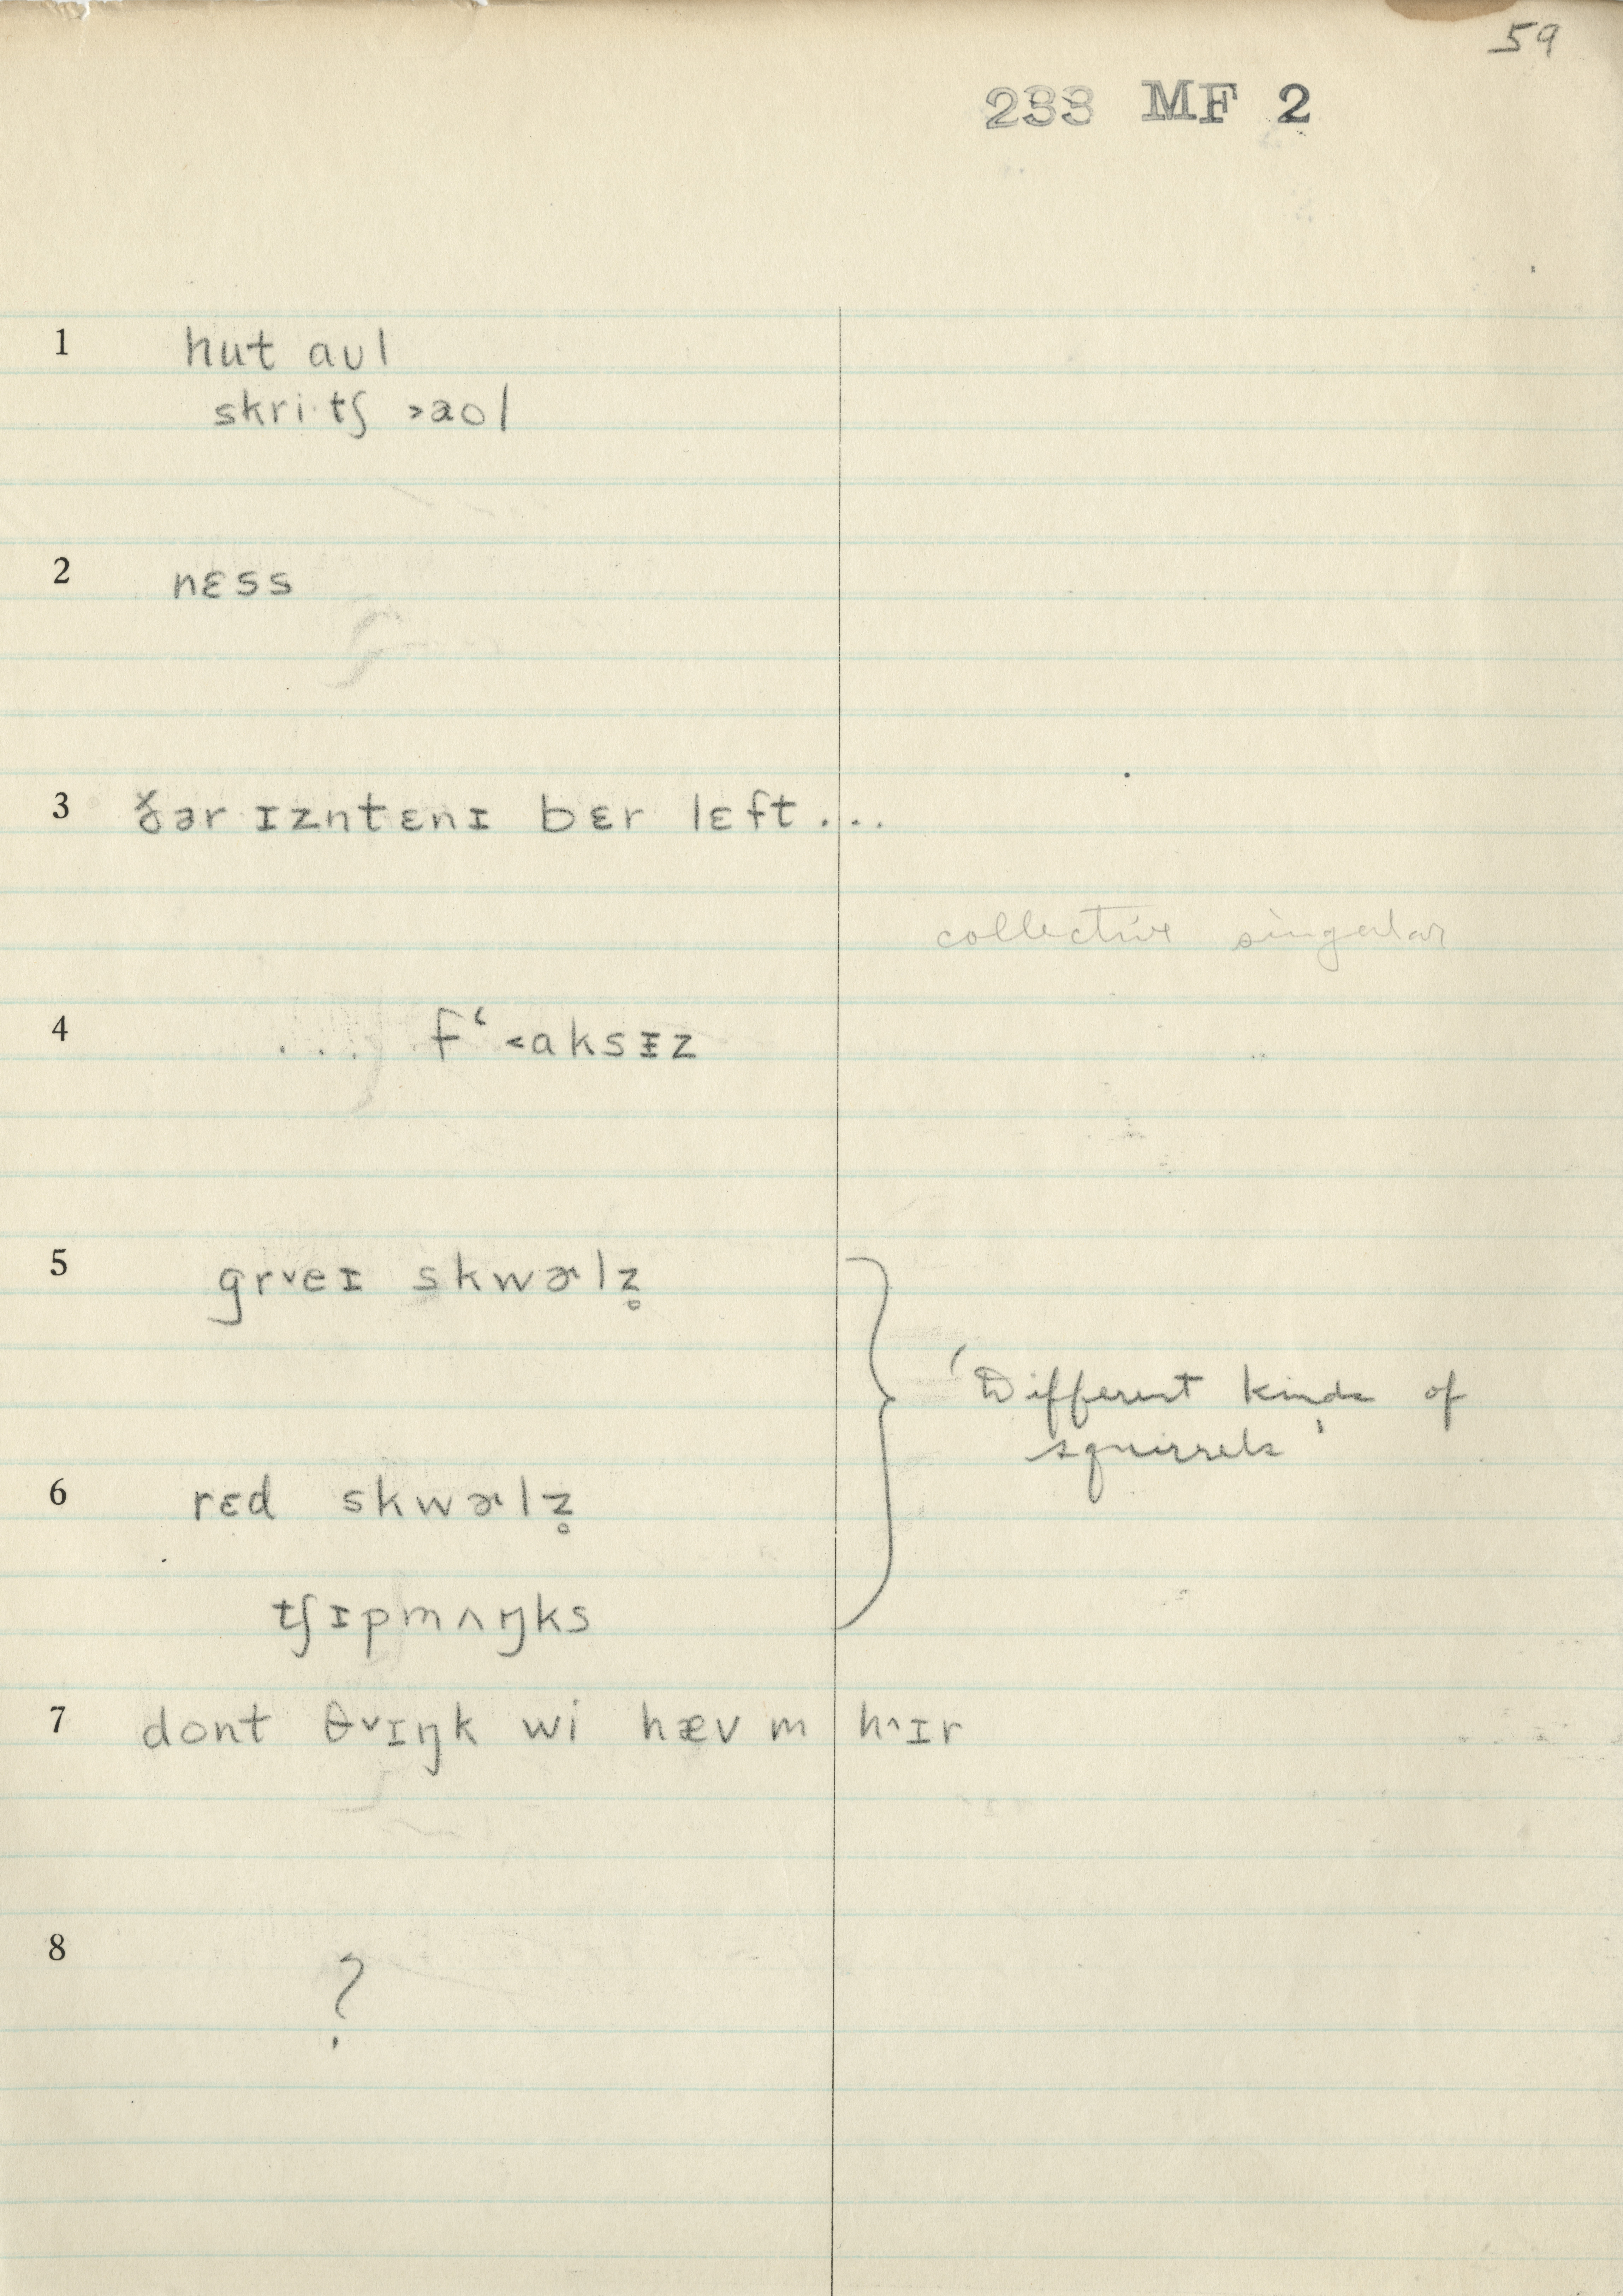 59
233 MF 2
1 hut aʊl
skri·tʃ ˃aol
2 nɛss
3 ðər ɪzntɛnɪ bɛr lɛft...
collective singular
4 ... fʻ˂aksᵻz
5 grˇeɪ skwɚlz̥
'Different kinds of
squirrels'
6 rɛd skwɚlz̥
tʃɪpmʌŋks
7 dont θˇɪŋk wi hævm hˆɪr
8 ?